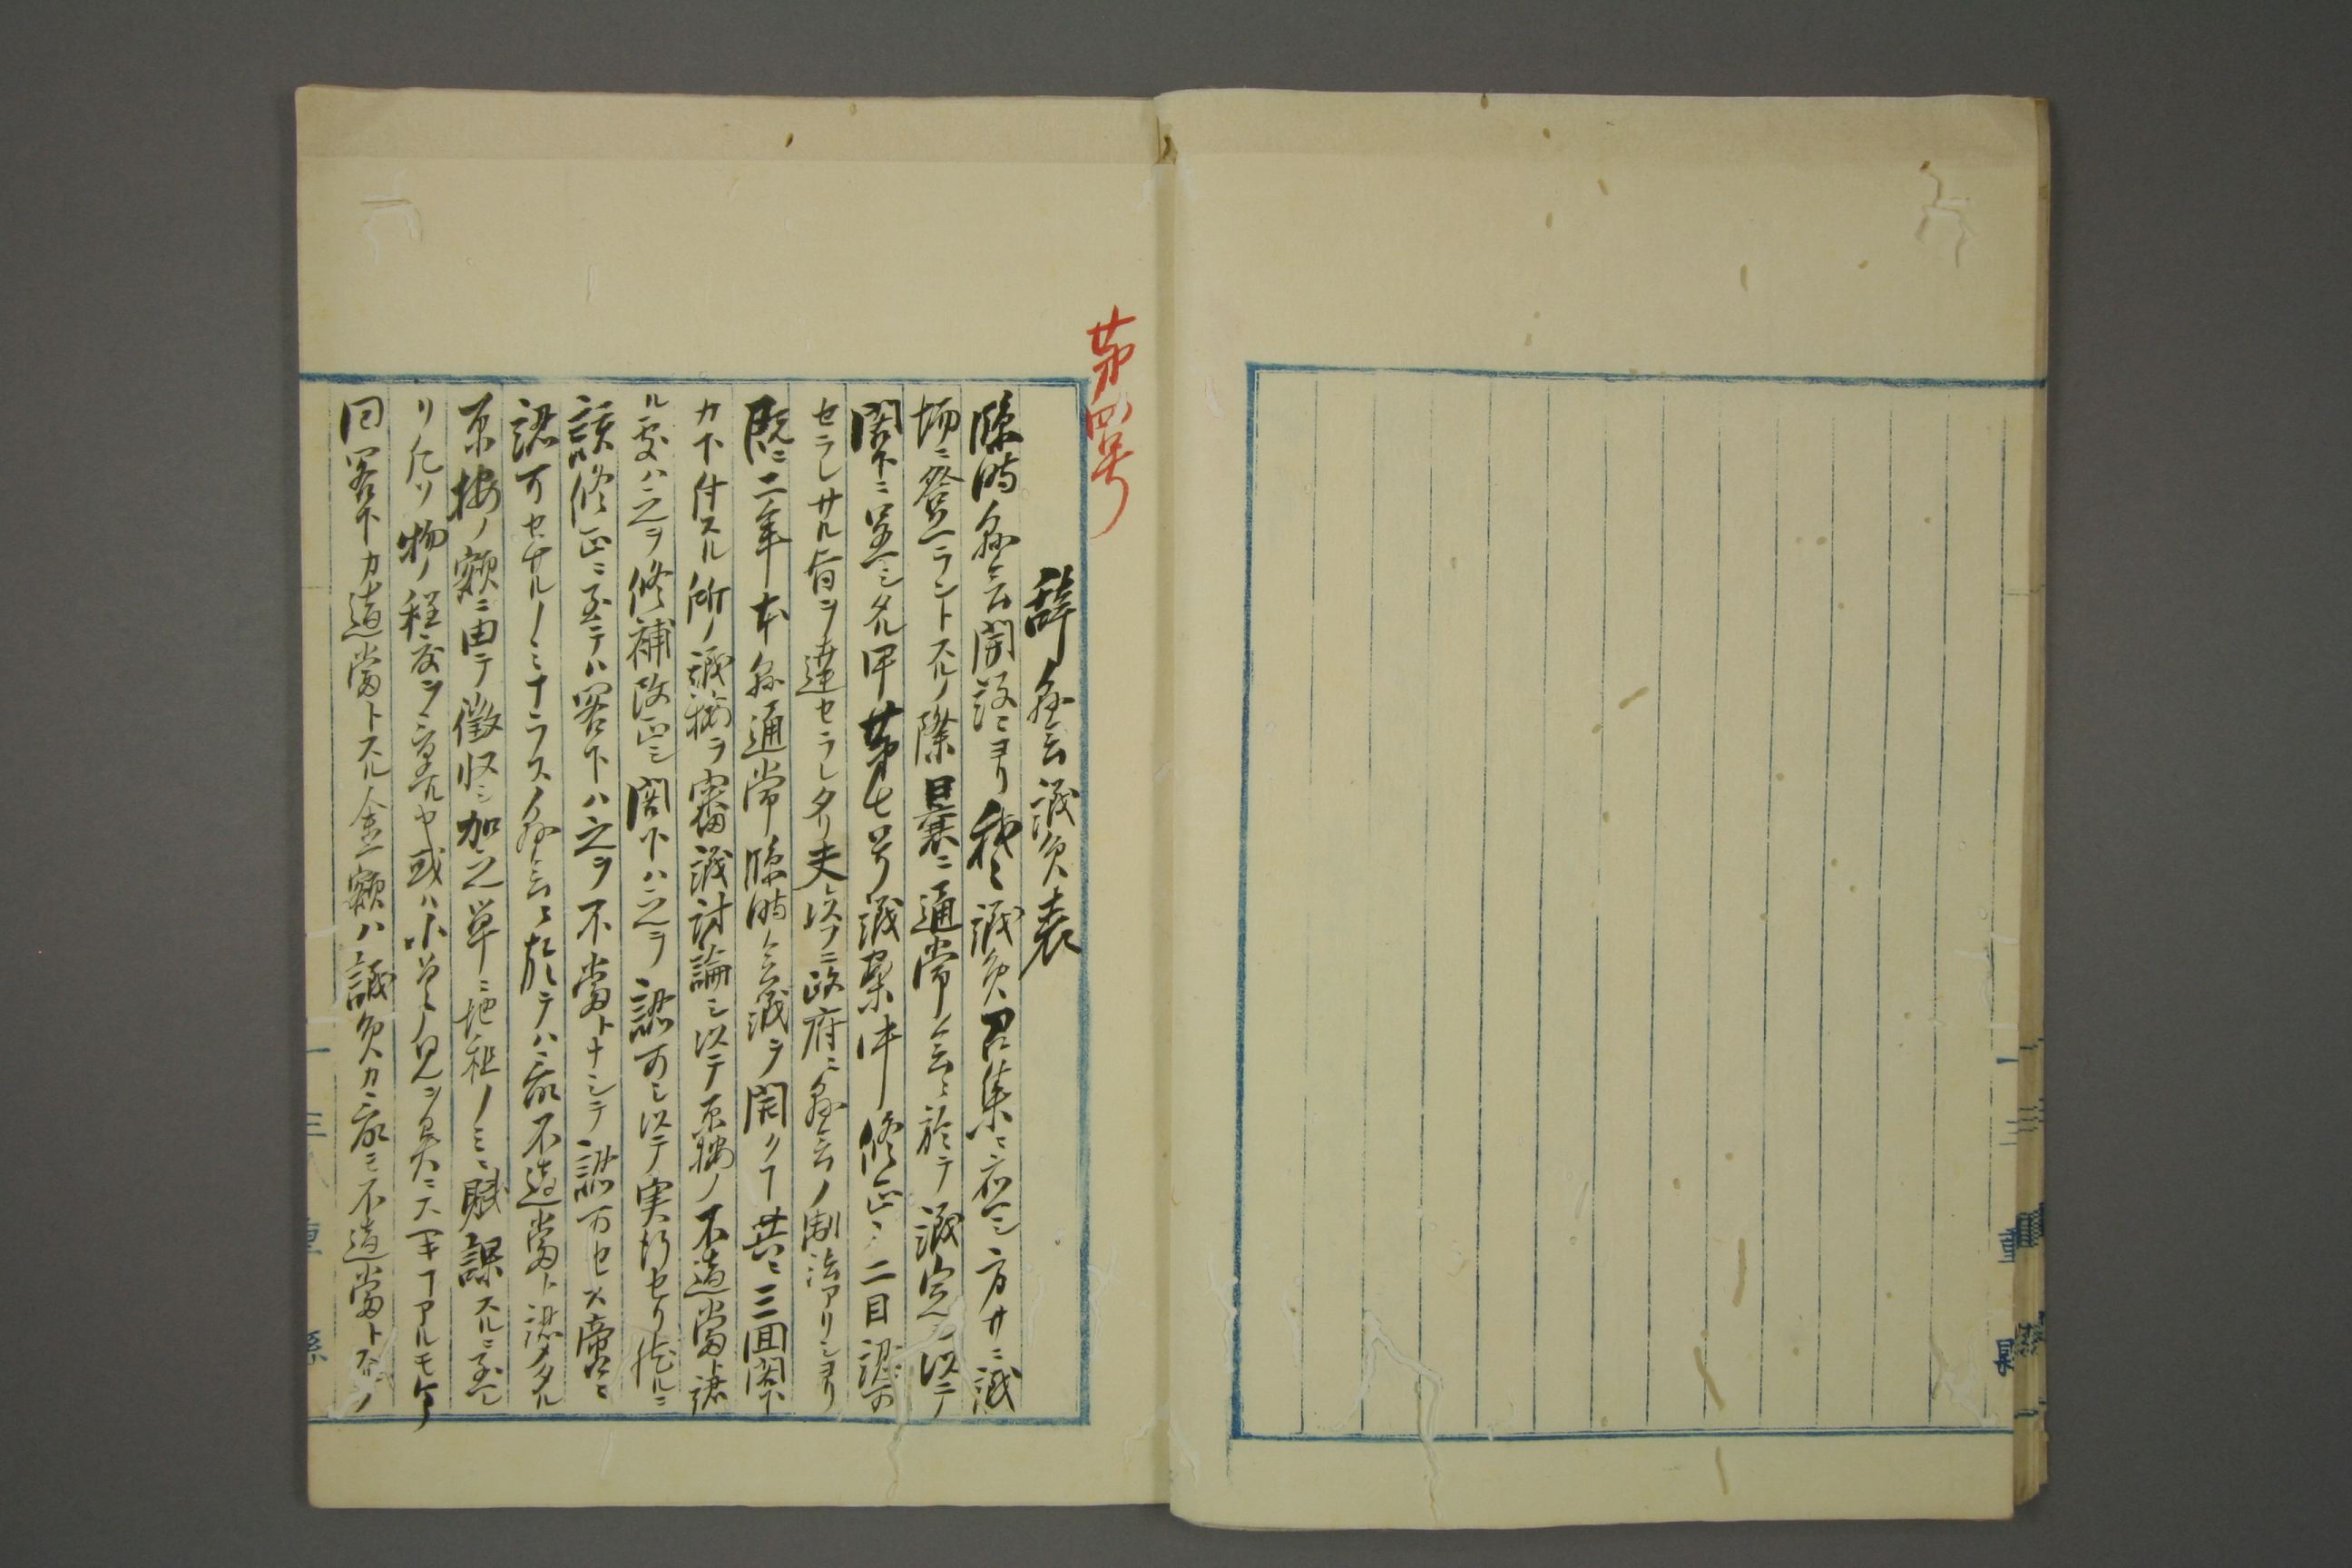 第四号
辞縣会議員表
臨時縣会開設ニヨリ我々議員召集ニ応シ方サニ議
場ニ登ラントスルノ際曩ニ通常会ニ於テ議定ヲ以テ
閣下ニ呈シタル甲第七号議案中修正ニ二目認可
セラレサル旨ヲ達セラレタリ夫レ以フニ政府ニ縣会ノ制法アリシヨリ
既ニ二年本縣通常臨時会議ヲ開クヿ共ニ三回閣下
カ下付スル所ノ議按ヲ審議討論シ以テ原按ノ不適當ト認
ル處ハ之ヲ修補改正シ閣下ハ之ヲ認可シ以テ実行セリ然ルニ
該修正ニ至テハ閣下ハ之ヲ不當トナシテ認可セス啻ニ
認可セサルノミナラス縣会ニ於テハ最不適當ト認メタル
原按ノ額ニ由テ徴収シ加之単ニ地租ノミニ賦課スルニ至レ
リ凡ソ物ノ程度ヲ定ルヤ或ハ小差ノ見ヲ異ニスヘキヿアルモ今
回閣下カ適當トスル金額ハ議員カ最モ不適當トスルノ
三重縣
三重縣